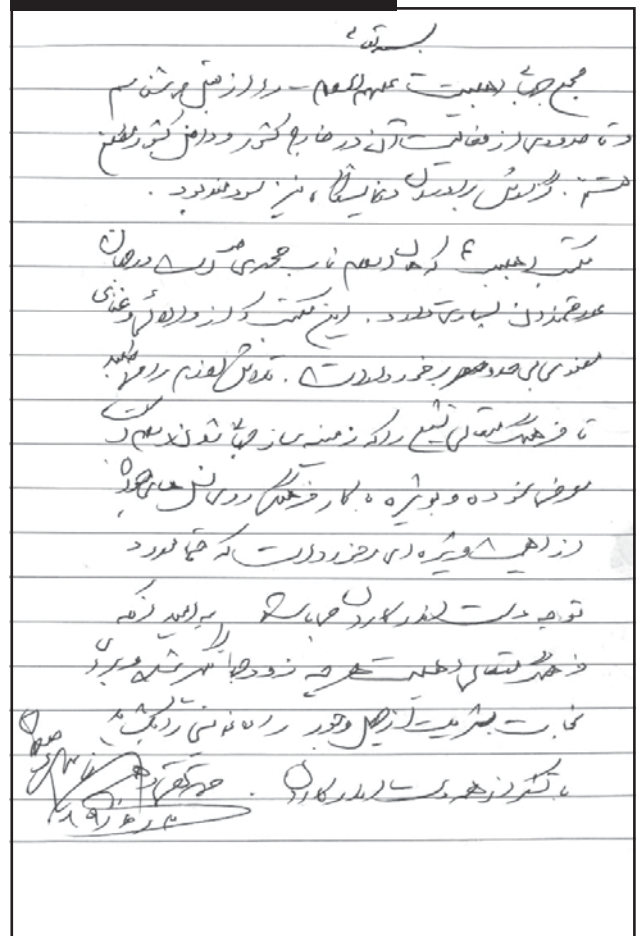 بسمه تعالی
مجمع جهانی اهلبیت علیهم السلام - را از قبل می شناسم
و تا حدودی از فعالیت آن در خارج کشور و داخل کشور مطلع
هستم. گزارش برادران نیز سودمند بود.
مکتب اهلبیت که اسلام ناب محمدی است در جهان
علاقمندان بسیاری دارد. این مکتب از و غنای
معنوی بی حدو حصر برخوردار است. تلاش لازم را می طلبد
تا فرهنگ متعالی تشیع را که زمینه ساز جهانی شدن اسلام است
معرفی نموده و بویژه کار فرهنگی روی نسل های جوان
از اهمیت ویژه ای برخوردار است که حتما مورد
توجه دست اندرکاران می باشد به امید آنکه
فرهنگ متعالی اهلبیت هر چه زودتر جهانگیر شده و برای
نجات بشریت از جهل و جور راه
با تشکر از همه دست اندرکاران.